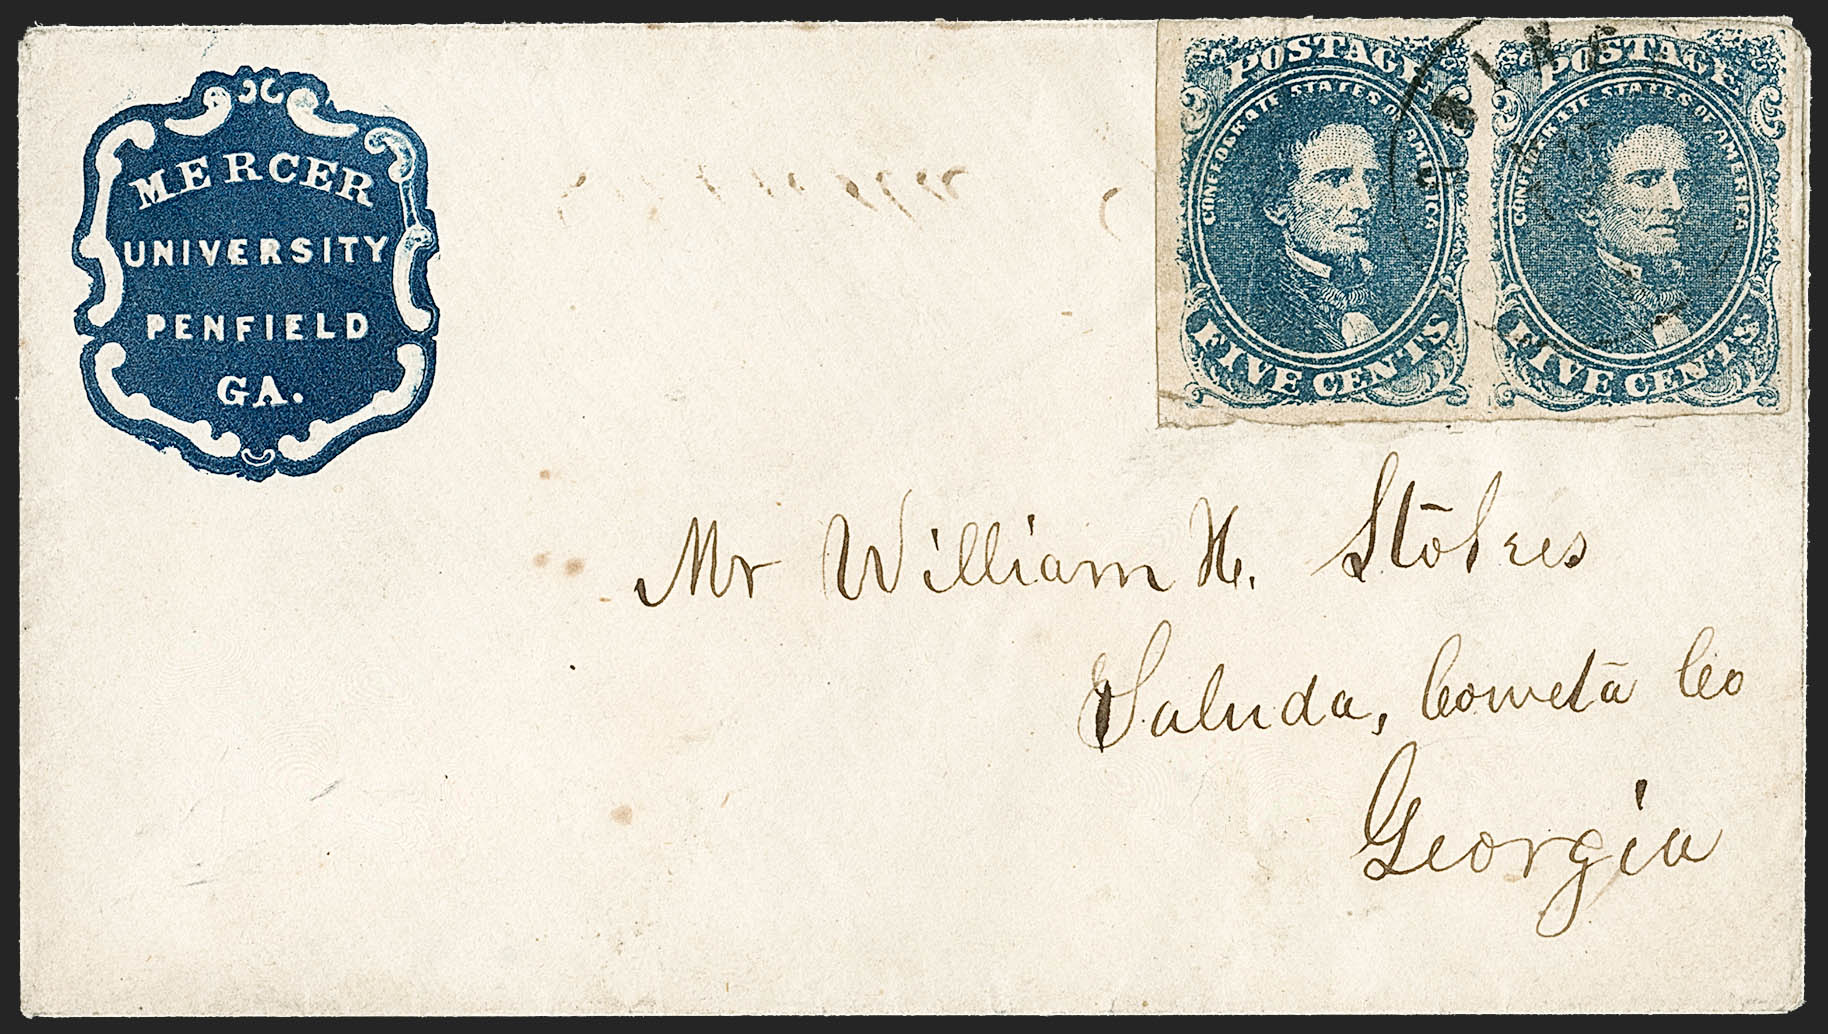 MERCER
UNIVERSITY
PENFIELD
GA.
POSTAGE
CONFEDERATE STATES OF AMERICA
FIVE CENTS
POSTAGE
CONFEDERATE STATES OF AMERICA
FIVE CENTS
Mr William H. Stokes
Saluda, Coweta Co
Georgia